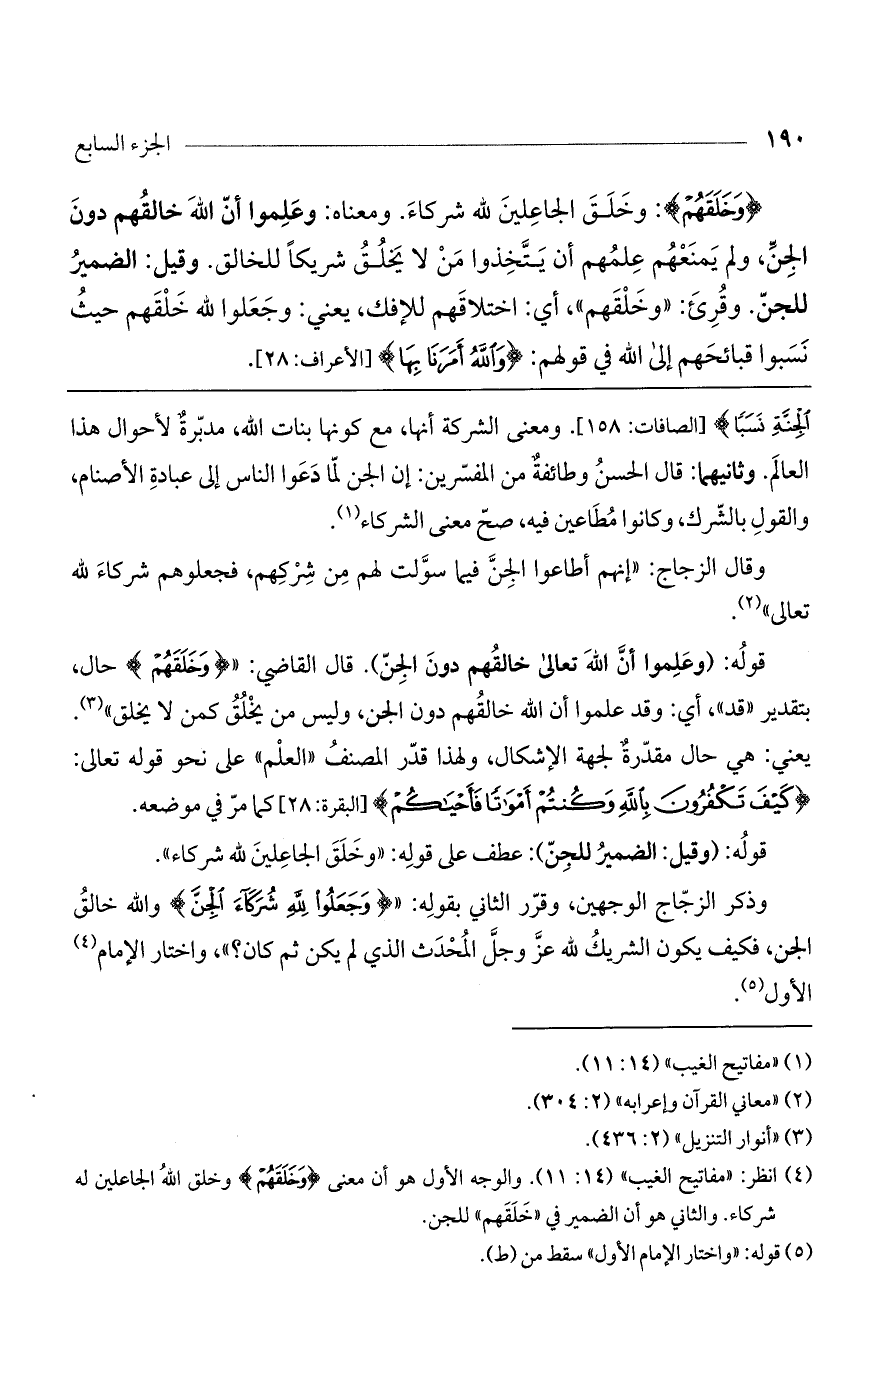 ١٩٠ الجزء السابع
﴿وَخَلَقَهُمْ﴾: وخَلَـقَ الجاعِلينَ لله شركاءَ. ومعناه: وعَلِموا أنّ اللهَ خالقُهم دونَ
الجِنِّ، ولم يَمنَعْهُم عِلمُهم أن يَـتَّخِذوا مَنْ لا يَخلُـقُ شريكاً للخالق. وقيل: الضميرُ
للجنّ. وقُرِئَ: «وخَلْقَهم»، أي: اختلاقَهم للإفك، يعني: وجَعَلوا لله خَلْقَهم حيثُ
نَسَبوا قبائحَهم إلىٰ الله في قولهم: ﴿وَٱللَّهُ أَمَرَنَا بِهَا﴾ [الأعراف: ٢٨].
ٱلْجِنَّةِ نَسَبًا﴾ [الصافات: ١٥٨]. ومعنى الشركة أنها، مع كونها بنات الله، مدبّرةٌ لأحوال هذا
العالَم. وثانيهما: قال الحسنُ وطائفةٌ من المفسّرين: إن الجن لمّا دَعَوا الناس إلى عبادةِ الأصنام،
والقولِ بالشّرك، وكانوا مُطَاعين فيه، صحّ معنى الشركاء(١).
وقال الزجاج: «إنهم أطاعوا الجِنَّ فيما سوَّلت لهم مِن شِرْكِهم، فجعلوهم شركاءَ لله
تعالى»(٢).
قولُه: (وعَلِموا أنَّ اللهَ تعالىٰ خالقُهم دونَ الجِنّ). قال القاضي: «﴿وَخَلَقَهُمْ﴾ حال،
بتقدير «قد»، أي: وقد علموا أن الله خالقُهم دون الجن، وليس من يخْلُقُ كمن لا يخلق»(٣).
يعني: هي حال مقدّرةٌ لجهة الإشكال، ولهذا قدّر المصنفُ «العلْم» على نحو قوله تعالى:
﴿كَيْفَ تَكْفُرُونَ بِٱللَّهِ وَكُنتُمْ أَمْوَٰتًا فَأَحْيَٰكُمْ﴾ [البقرة: ٢٨] كما مرّ في موضعه.
قولُه: (وقيل: الضميرُ للجنّ): عطف على قولِه: «وخَلَقَ الجاعِلينَ لله شركاء».
وذكر الزجّاج الوجهين، وقرّر الثاني بقولِه: «﴿وَجَعَلُوا۟ لِلَّهِ شُرَكَآءَ ٱلْجِنَّ﴾ والله خالقُ
الجن، فكيف يكون الشريكُ لله عزَّ وجلَّ المُحْدَث الذي لم يكن ثم كان؟»، واختار الإمام(٤)
الأول(٥).
(١) «مفاتيح الغيب» (١٤: ١١).
(٢) «معاني القرآن وإعرابه» (٢: ٣٠٤).
(٣) «أنوار التنزيل» (٢: ٤٣٦).
(٤) انظر: «مفاتيح الغيب» (١٤: ١١). والوجه الأول هو أن معنى ﴿وَخَلَقَهُمْ﴾ وخلق اللهُ الجاعلين له
شركاء. والثاني هو أن الضمير في «خَلَقَهم» للجن.
(٥) قوله: «واختار الإمام الأول» سقط من (ط).